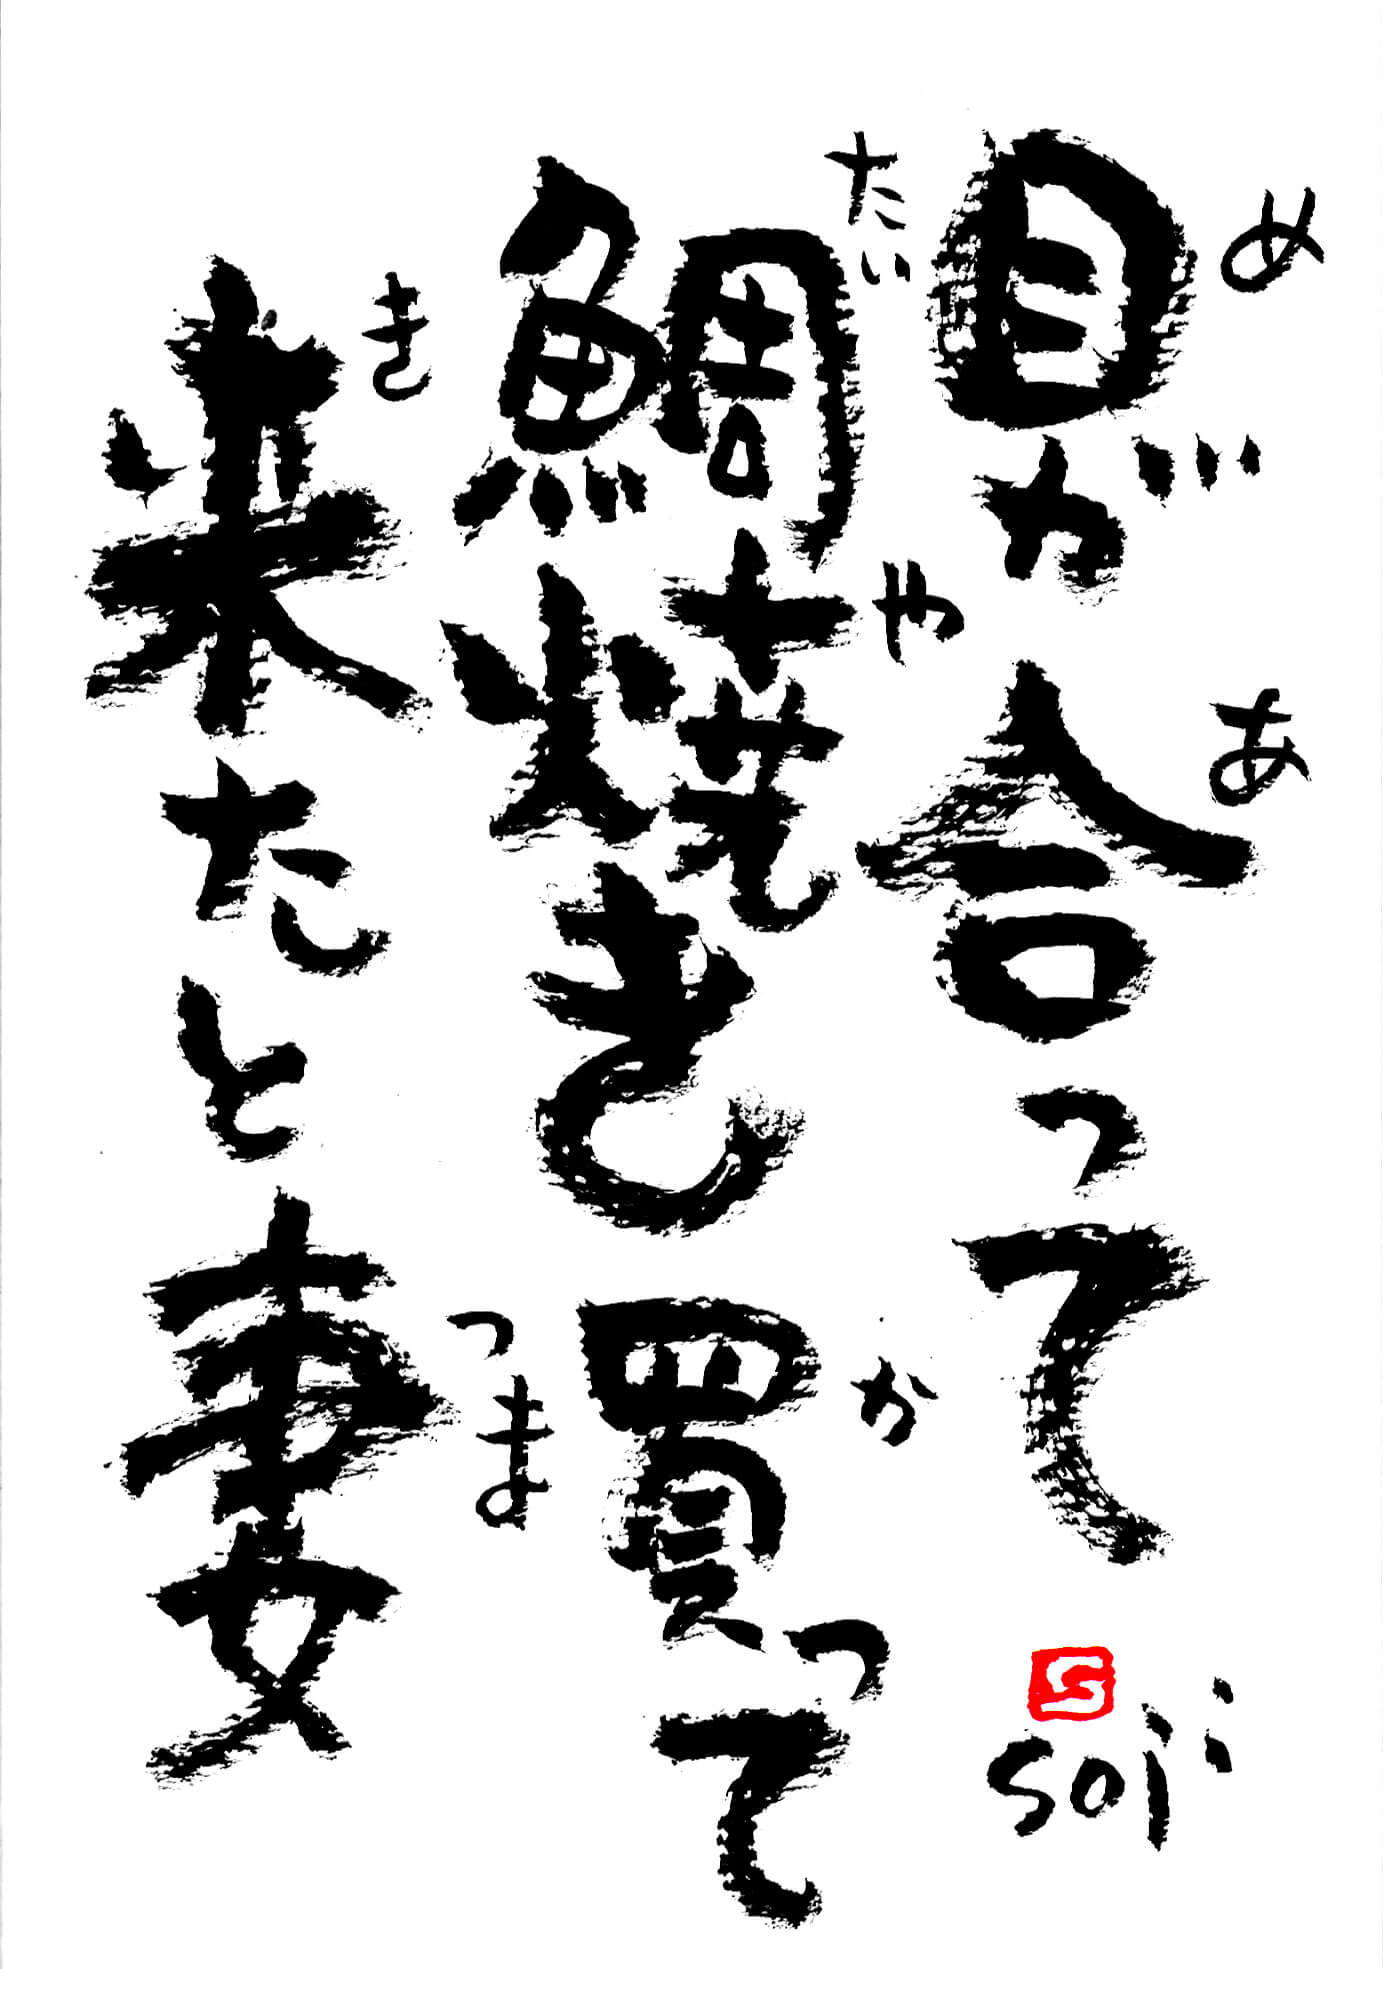 目が合って
鯛焼き買って
来たと妻
め
あ
たい
や
か
き
つま
soji
S